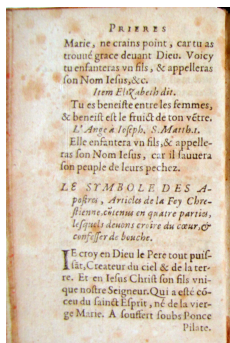 PRIERES
Marie, ne crains point, car tu as
trouué grace deuant Dieu. Voicy
tu enfanteras vn fils, & appelleras
son Nom Iesus, &c.
Item Elizabeth dit.
Tu es beneiste entre les femmes,
& beneist est le fruict de ton vẽtre.
L'Ange à Ioseph. S. Matth. 1.
Elle enfantera vn fils, & appelle-
ras son Nom Iesus, car il sauuera
son peuple de leurs pechez.
LE SYMBOLE DES A-
postres, Articles de la Foy Chre-
stienne, cõtenue en quatre parties,
lesquels deuons croire du cœur, &
confesser de bouche.
IE croy en Dieu le Pere tout puis-
sãt, Createur du ciel & de la ter-
re. Et en Iesus Christ son fils vni-
que nostre Seigneur. Qui a esté cõ-
ceu du sainct Esprit, né de la vier-
ge Marie. A souffert soubs Ponce
Pilate.